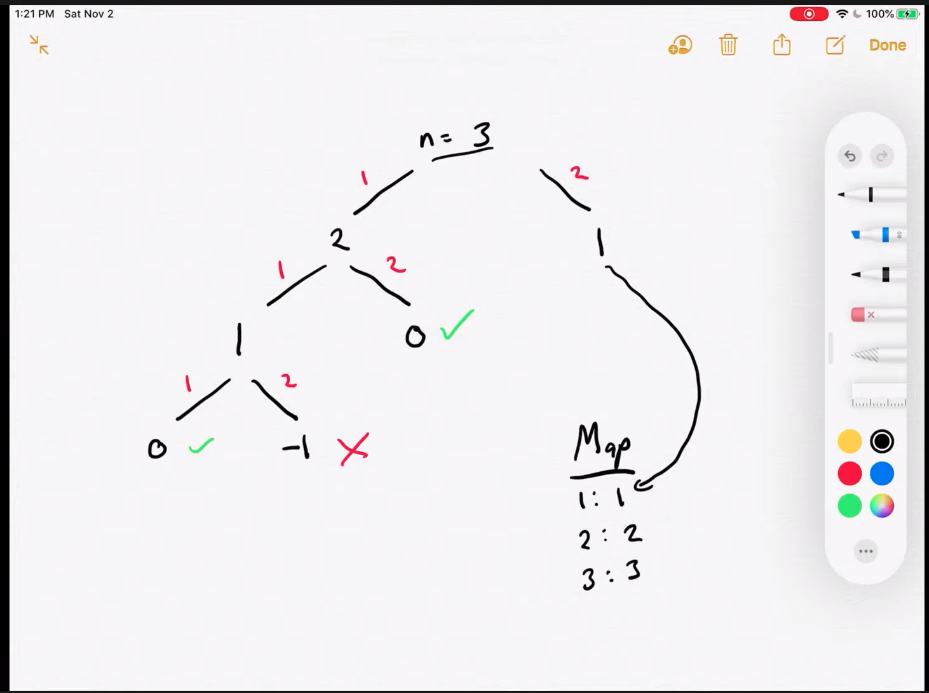 1:21 PM Sat Nov 2 100%
Done
n= 3
1 2
2 1
1 2
1 0
1 2
0 -1
Map
1: 1
2: 2
3: 3